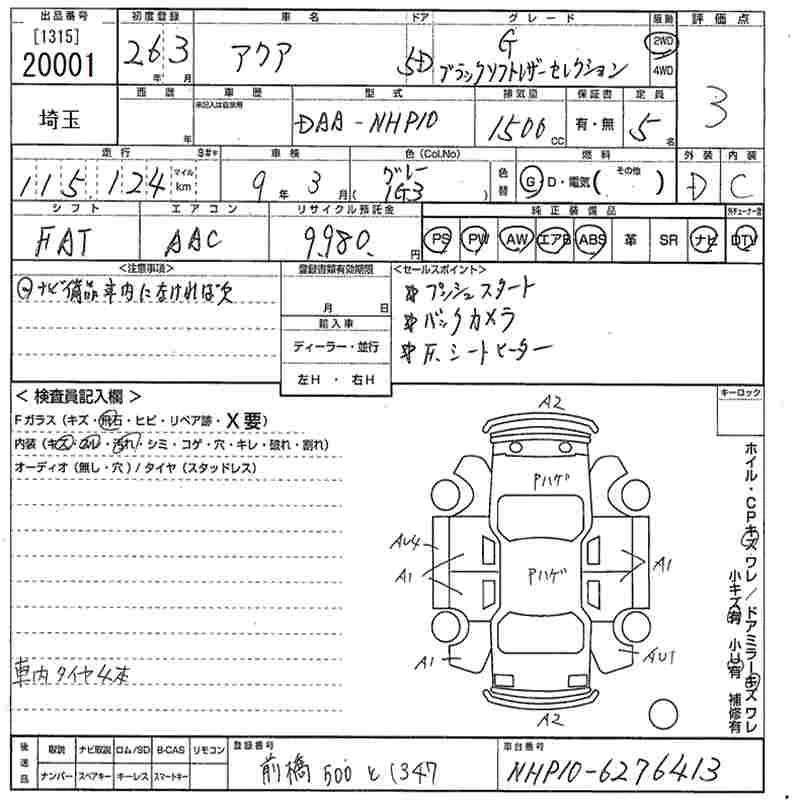 出品番号 初度登録 車名 ドア グレード 駆動 評価点
[1315]
20001 26年 3月 アクア 5D G 2WD 3
ブラックソフトレザーセレクション 4WD
埼玉 西暦 車歴 型式 排気量 保証書 定員
年 未記入は自家用 DAA-NHP10 1500cc 有・無 5名
走行 車検 色(Col.No) 燃料 外装 内装
115,124 マイル km 9年 3月 グレー (1G3) 色替 G・D・電気( その他 ) D C
シフト エアコン リサイクル預託金 純正装備品
FAT AAC 9,980.円 PS PW AW エアB ABS 革 SR ナビ DTV
<注意事項> 登録書類有効期限 <セールスポイント>
ナビ備品車内になければ欠 月 日 プッシュスタート
輸入車 バックカメラ
ディーラー・並行 F.シートヒーター
左H・右H
<検査員記入欄> キーロック
Fガラス(キズ・飛石・ヒビ・リペア跡・X要)
内装(キズ・スレ・汚れ・シミ・コゲ・穴・キレ・破れ・割れ)
オーディオ(無し・穴)/タイヤ(スタッドレス)
A2
Pハゲ
AU4
A1 Pハゲ A1
A1 AU1
A2
ホイル・CPキズワレ/ドアミラーキズワレ
小キズ有 小U有 補修有
車内タイヤ4本
後送品 取説 ナビ取説 ロム/SD B-CAS リモコン 登録番号 車台番号
ナンバー スペアキー キーレス スマートキー 前橋 500 と 1347 NHP10-6276413